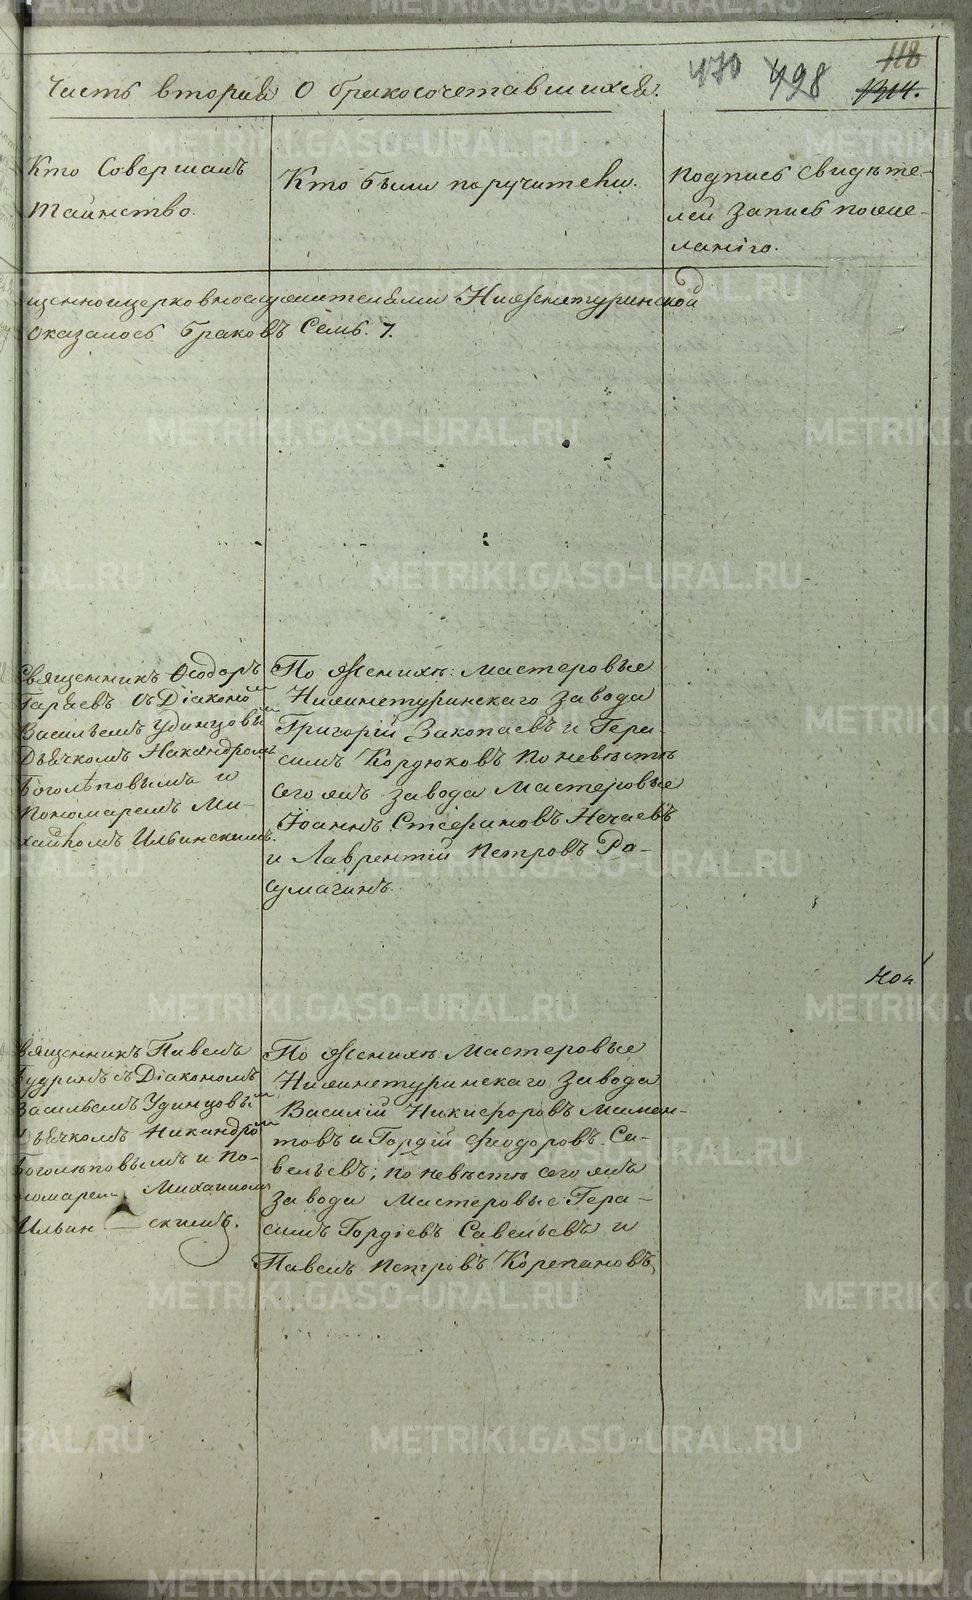 Часть вторая О бракосочетавшихся.
470 498 118
1214.
Кто Совершалъ
таинство.
Кто были поручители.
Подпись Свидѣте-
лей запись по же-
ланію.
щенноцерковнослужителями Нижнетуринской
оказалось браковъ Семь. 7.
Священникъ Ѳеодоръ
Гаряевъ съ Діакономъ
Васильемъ Удинцовымъ
Дьячкомъ Никандромъ
Боголѣповымъ и
Пономаремъ Ми-
хаиломъ Ильинскимъ.
По Женихѣ: Мастеровые
Нижнетуринскаго завода
Григорій Закопаевъ и Гера-
симъ Кордюковъ по невѣстѣ
сего жъ завода Мастеровые
Іоаннъ Стефановъ Нечаевъ
и Лаврентій Петровъ Ро-
сумагинъ.
Кон
вященникъ Павелъ
Гудринъ съ Діакономъ
Васильемъ Удинцовымъ
Дьячкомъ Никандромъ
Боголѣповымъ и По-
номаремъ Михаиломъ
Ильинскимъ.
По Женихѣ Мастеровые
Нижнетуринскаго завода
Василій Никифоровъ Мамон-
товъ и Гордій Феодоровъ Са-
вельевъ; по невѣстѣ сего жъ
завода Мастеровые Гера-
симъ Гордіевъ Савельевъ и
Павелъ Петровъ Корепановъ,
METRIKI.GASO-URAL.RU